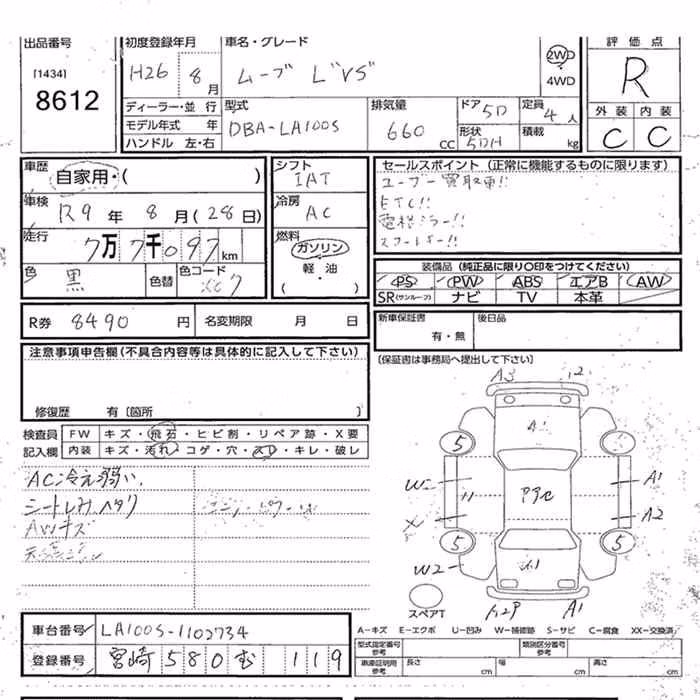 出品番号
[1434]
8612
初度登録年月
H26 8月
車名・グレード
ムーブ L"VS"
2WD
4WD
評価点
R
外装 内装
C C
ディーラー・並行
モデル年式 年
ハンドル 左・右
型式
DBA-LA100S
排気量
660 CC
ドア 5D
形状 5DH
定員
4 人
積載 kg
車歴
自家用・( )
車検
R9 年 8 月 (28 日)
走行
7万7千097 km
色
黒
色替
色コード
シフト
IAT
冷房
AC
燃料
ガソリン
軽・油
( ・ )
セールスポイント (正常に機能するものに限ります)
ユーザー買取車!!
ETC!!
電格ミラー!!
装備品 (純正品に限り○印をつけてください)
PS PW ABS エアB AW
SR(サンルーフ) ナビ TV 本革
R券 8490 円 名変期限 月 日
新車保証書
有・無
後日品
[保証書は事務局へ提出して下さい]
注意事項申告欄(不具合内容等は具体的に記入して下さい)
修復歴 有〔箇所 〕
検査員 FW キズ・飛石・ヒビ割・リペア跡・X要
記入欄 内装 キズ・汚れ・コゲ・穴・スレ・キレ・破レ
AC冷え弱い
シートしみヘタリ
AWキズ
A3
A1
5 5
W A1
X A2
5 5
W2 A1
スペアT
A-キズ E-エクボ U-凹み W-補修跡 S-サビ C-腐食 XX-交換済
車台番号 LA100S-1102734
登録番号 宮崎 580 む 119
型式指定番号
参考
類別区分番号
参考
車庫証明用
参考
長さ cm 幅 cm 高さ cm